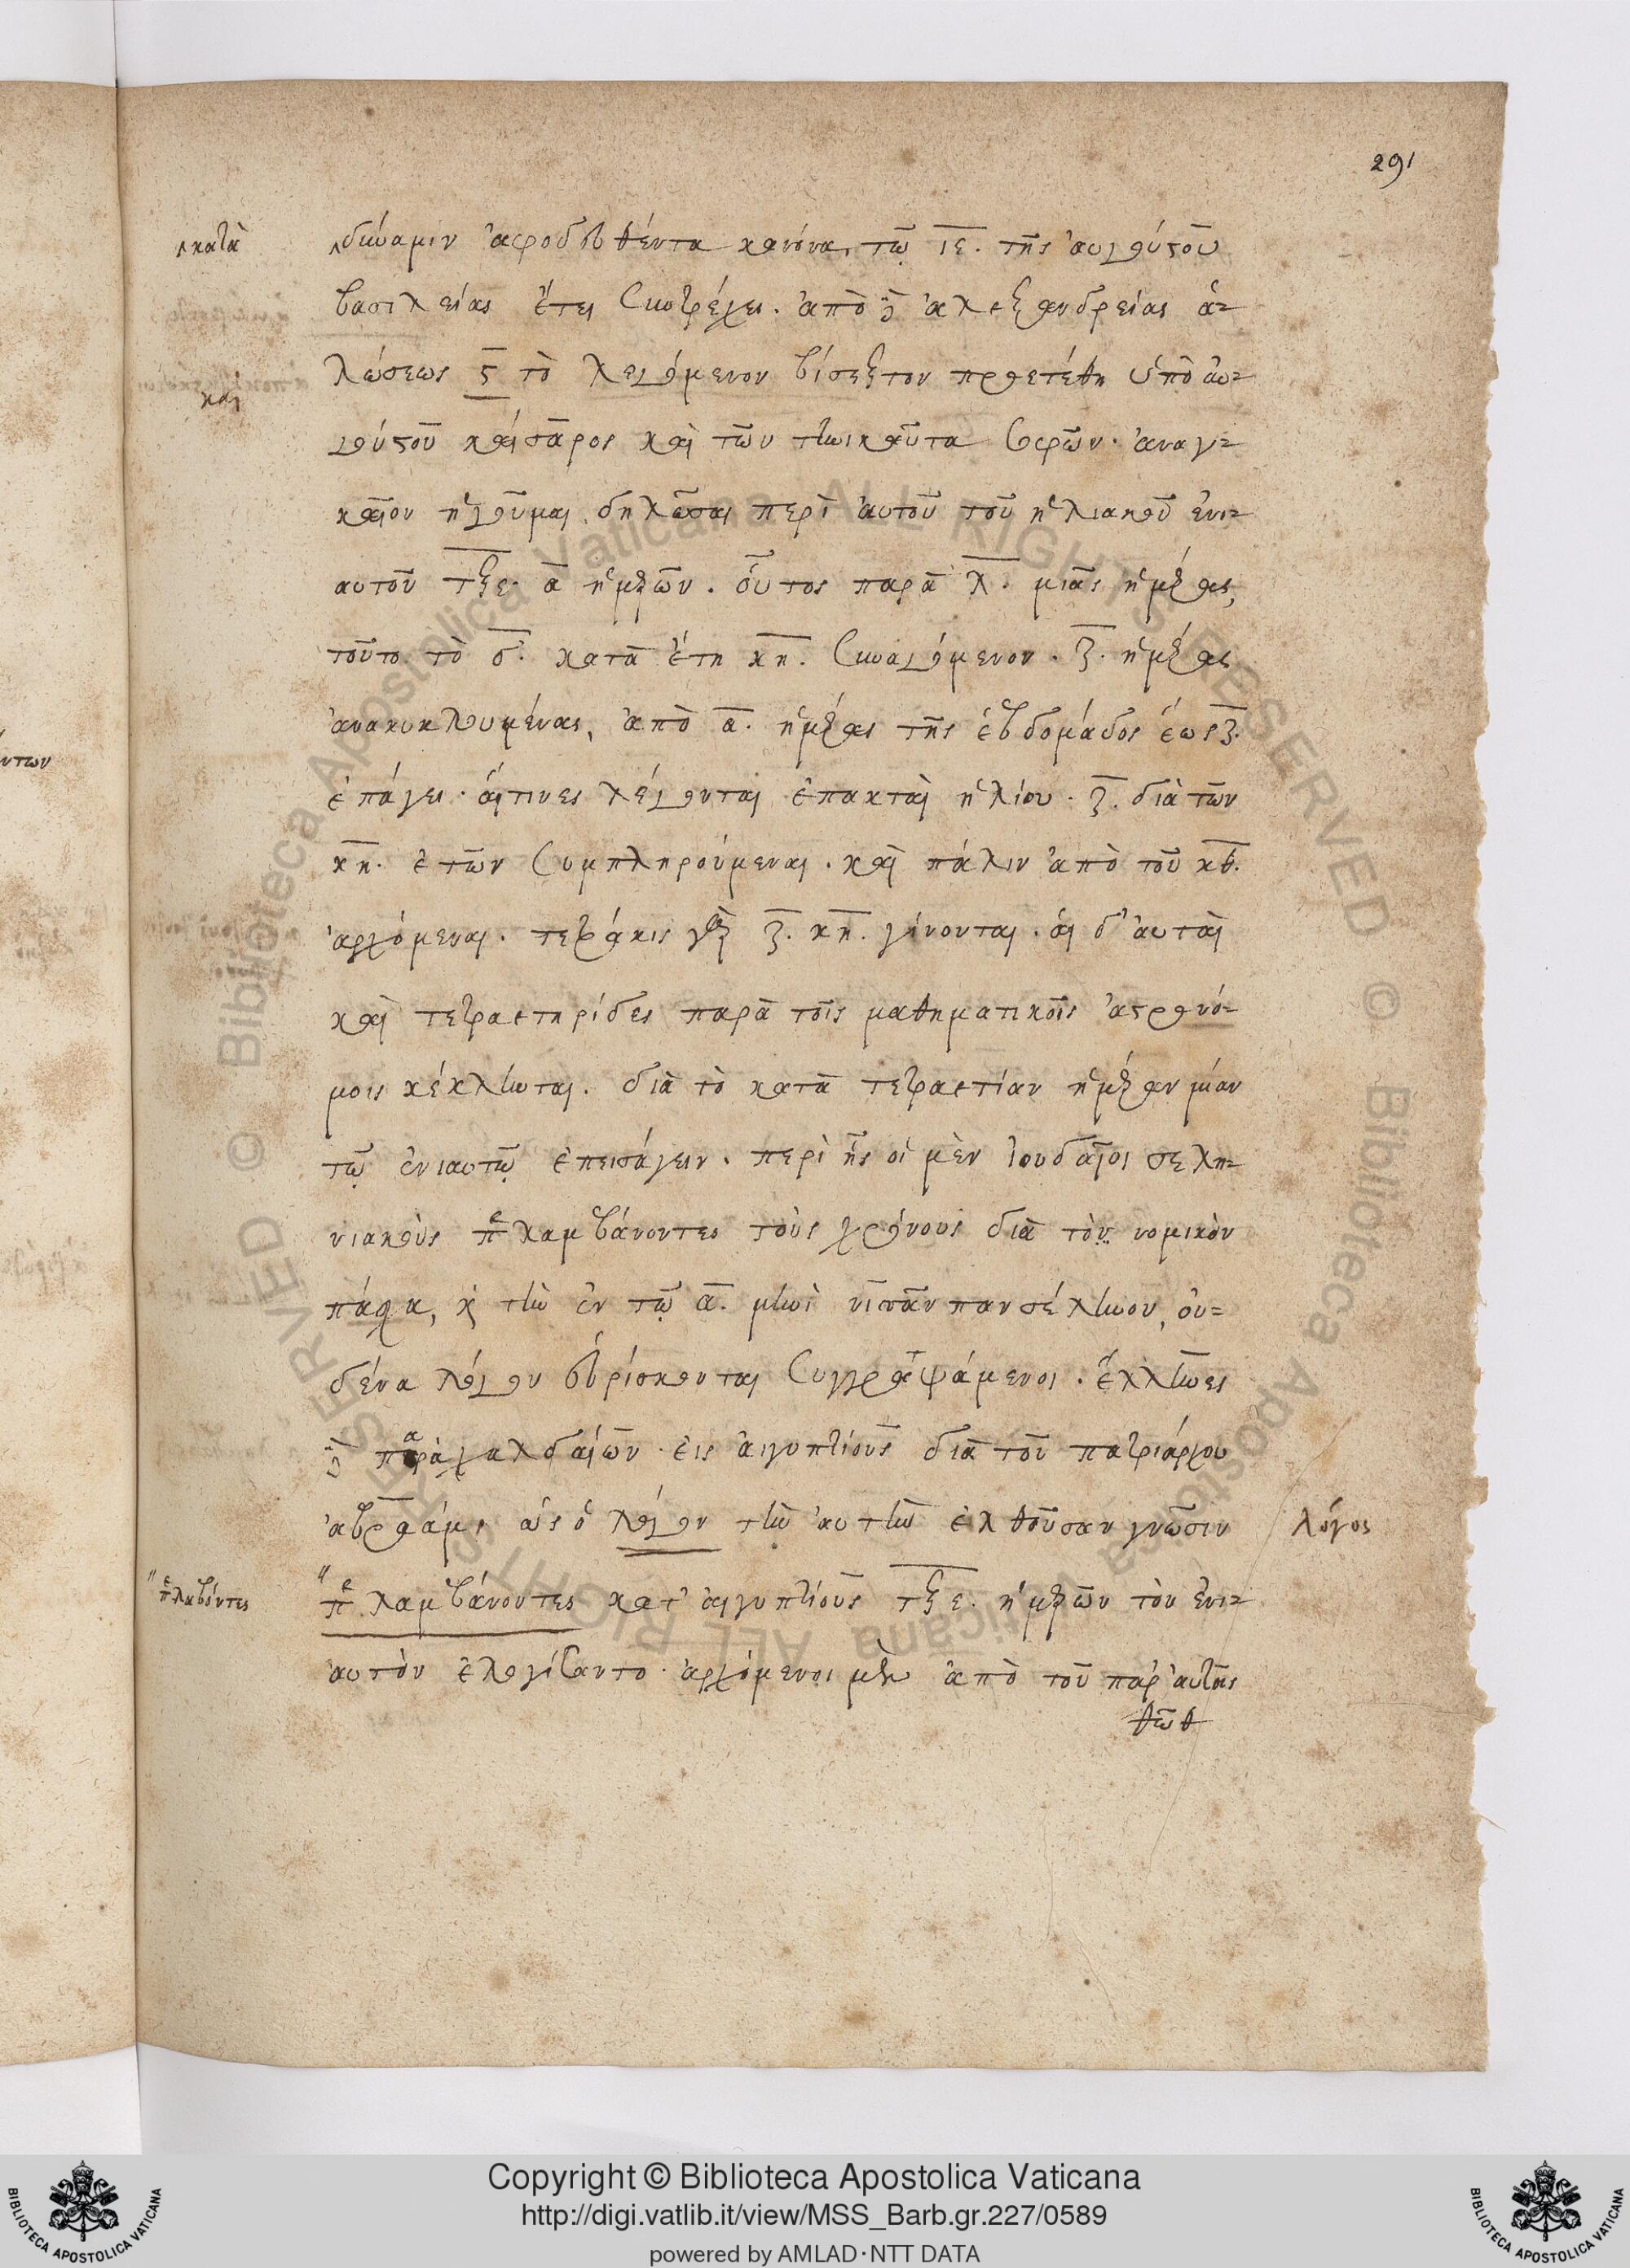 291
κατὰ
δύναμιν ἀφροδευθέντα κανόνα, τῷ ιε. τῆς ἀυγούστου
βασιλείας ἔτει συντρέχει. ἀπὸ δὲ ἀλεξανδρείας ἁ-
λώσεως ϛ τὸ λεγόμενον βίσεξτον προετέθη ὑπὸ ἀυ-
και
γούστου καίσαρος καὶ τῶν τηνικαῦτα σοφῶν. ἀναγ-
καῖον ἡγοῦμαι δηλῶσαι περὶ ἀυτοῦ τοῦ ἡλιακοῦ ἐνι-
αυτοῦ τξε. α ἡμερῶν. οὕτος παρὰ λ. μιᾶς ἡμέρας,
τοῦτο τὸ δ. κατὰ ἔτη κη. συναγόμενον. ζ. ἡμέρας
ἀνακυκλουμένας, ἀπὸ α. ἡμέρας τῆς ἑβδομάδος ἕως ζ.
ἐπάγει. αἵτινες λέγονται ἐπακταὶ ἡλίου. ζ. διὰ τῶν
κη. ἐτῶν συμπληρούμεναι. καὶ πάλιν ἀπὸ τοῦ κθ.
ἀρχόμεναι. τετράκις γὰρ ζ. κη. γίνονται. αἱ δ' ἀυταὶ
καὶ τετραετηρίδες παρὰ τοῖς μαθηματικοῖς ἀστρονό-
μοις κέκληνται. διὰ τὸ κατὰ τετραετίαν ἡμέραν μίαν
τῷ ἐνιαυτῷ ἐπεισάγειν. περὶ ἧς οἱ μὲν ἰουδαῖοι σελη-
νιακοὺς πελαμβάνοντες τοὺς χρόνους διὰ τὸν νομικὸν
πάσχα, κ τὴν ἐν τῷ α. μηνὶ νισὰν πανσέληνον, οὐ-
δένα λόγον εὑρίσκονται συγγραψάμενοι. ἕλληνες
δὲ παρὰ χαλδαίων εἰς ἀιγυπτίους διὰ τοῦ πατριάρχου
ἀβραὰμ, ὡς ὁ λόγον τὴν ἀυτὴν ἐλθοῦσαν γνῶσιν
λόγος
πελαβόντες
πελαμβάνοντες κατ' ἀιγυπτίους τξε. ἡμερῶν τὸν ἐνι-
αυτὸν ἐλογίσαντο. ἀρχόμενοι μὲν ἀπὸ τοῦ παρ' ἀυτοῖς
θῶθ
ντων
© Biblioteca Apostolica Vaticana ALL RIGHTS RESERVED © Biblioteca Apostolica Vaticana ALL RIGHTS RESERVED
Copyright © Biblioteca Apostolica Vaticana
http://digi.vatlib.it/view/MSS_Barb.gr.227/0589
powered by AMLAD·NTT DATA
BIBLIOTECA APOSTOLICA VATICANA
BIBLIOTECA APOSTOLICA VATICANA